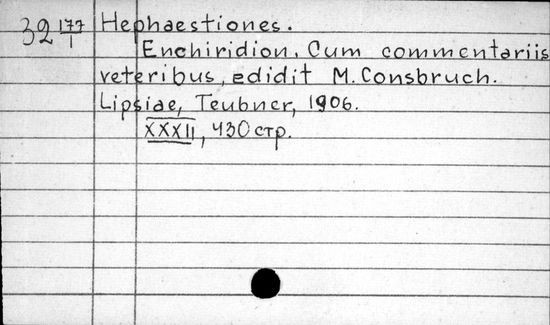 32 177/1 Hephaestiones.
Enchiridion. Cum commentariis
veteribus edidit M. Consbruch.
Lipsiae, Teubner, 1906.
XXXII, 430 стр.